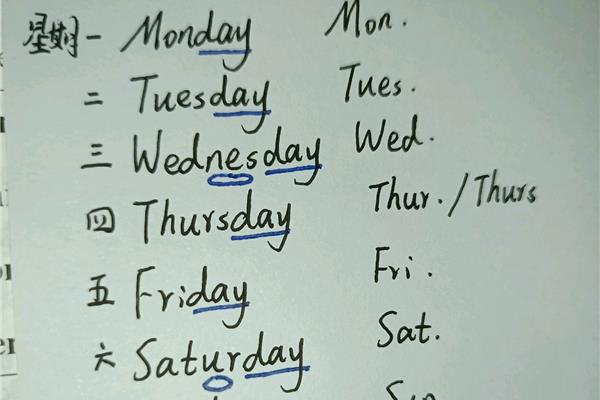 星期一 Monday Mon.
二 Tuesday Tues.
三 Wednesday Wed.
四 Thursday Thur. / Thurs
五 Friday Fri.
六 Saturday Sat.